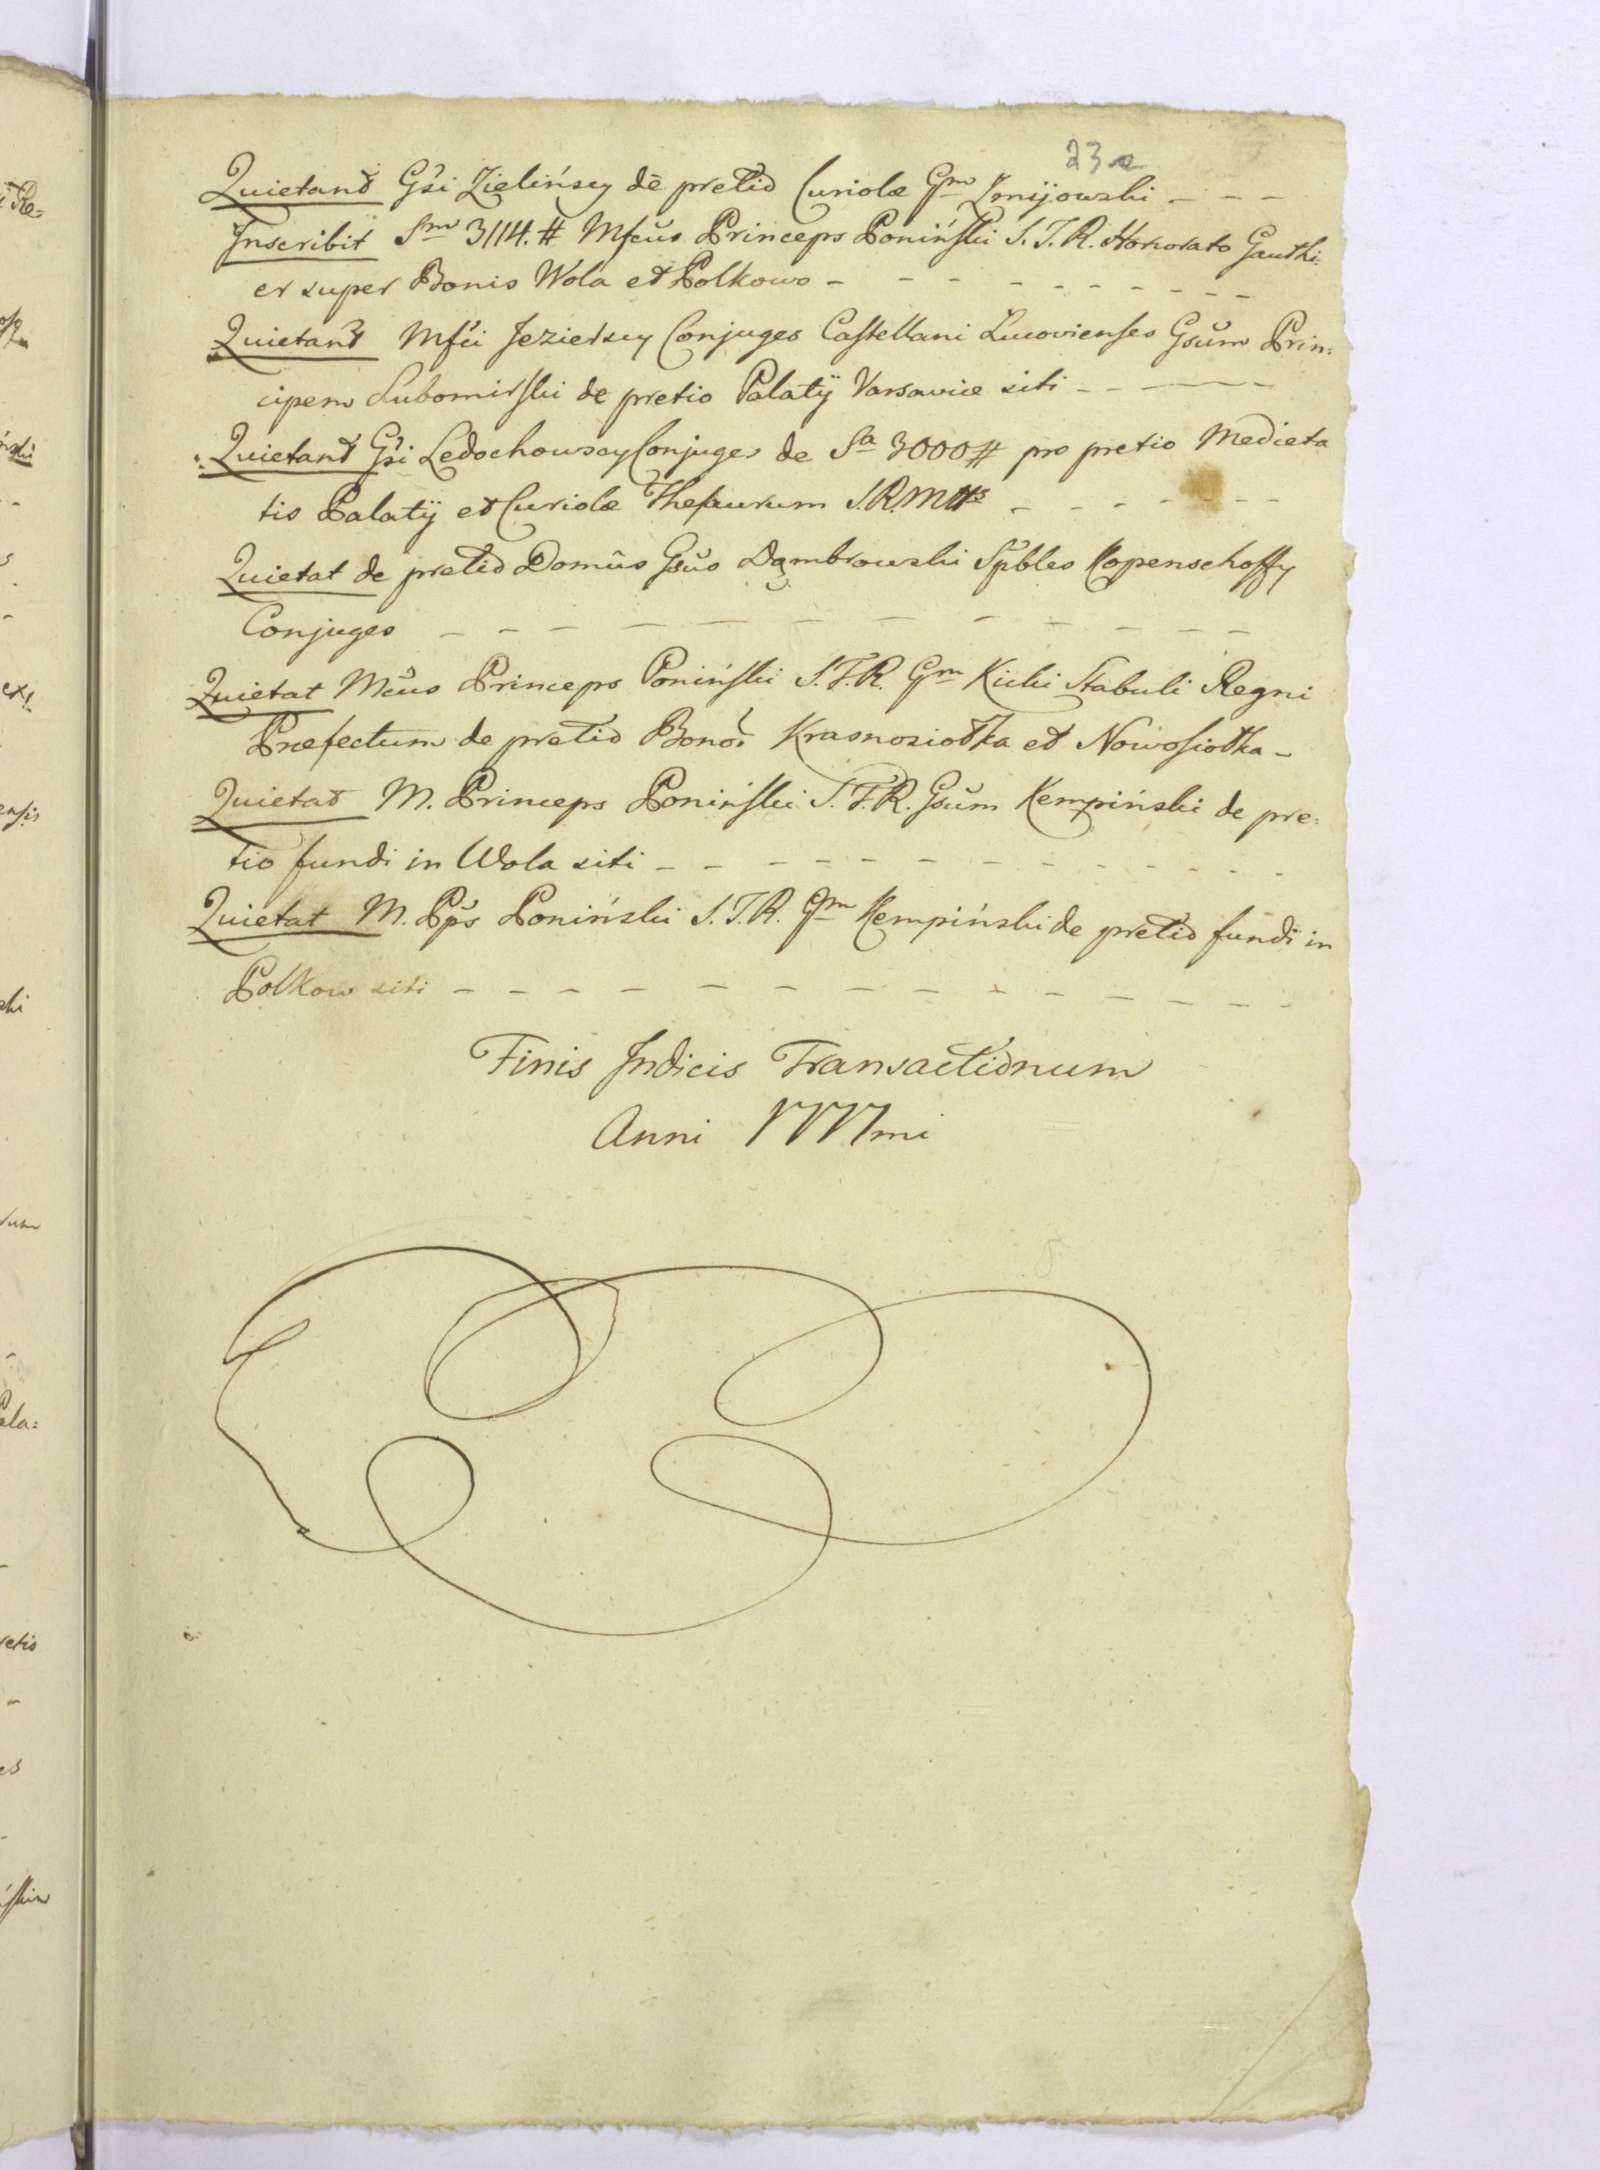 23a
Quietant Gsi Zielińscy de pretio Curiolæ Gm Zmijowski
Inscribit Sm 3114. # Mfcus Princeps Poniński S. T. R. Honorato Gauthi:
er super Bonis Wola et Polkowo
Quietant Mfci Jezierscy Conjuges Castellani Lucovienses Gsum Prin:
cipem Lubomirski de pretio Palatÿ Varsaviæ siti
Quietant Gsi Ledochowscy Conjuges de Sa 3000# pro pretio Medieta
tis Palatÿ et Curiolæ Thesaurum S.R.Mttis
Quietat de pretio Domûs Gsus Dąmbrowski Spbles Kopenschoffy
Conjuges
Quietat Mcus Princeps Poniński S.T.R. Gm Kicki Stabuli Regni
Præfectum de pretio Bonor Krasnosiołka et Nowosiołka
Quietat M. Princeps Poniński S. T. R. Gsum Kempiński de pre:
tio fundi in Wola siti
Quietat M. Pps Poniński S. T. R. Gm Kempiński de pretio fundi in
Polkow siti
Finis Indicis Transactionum
Anni 1777mi